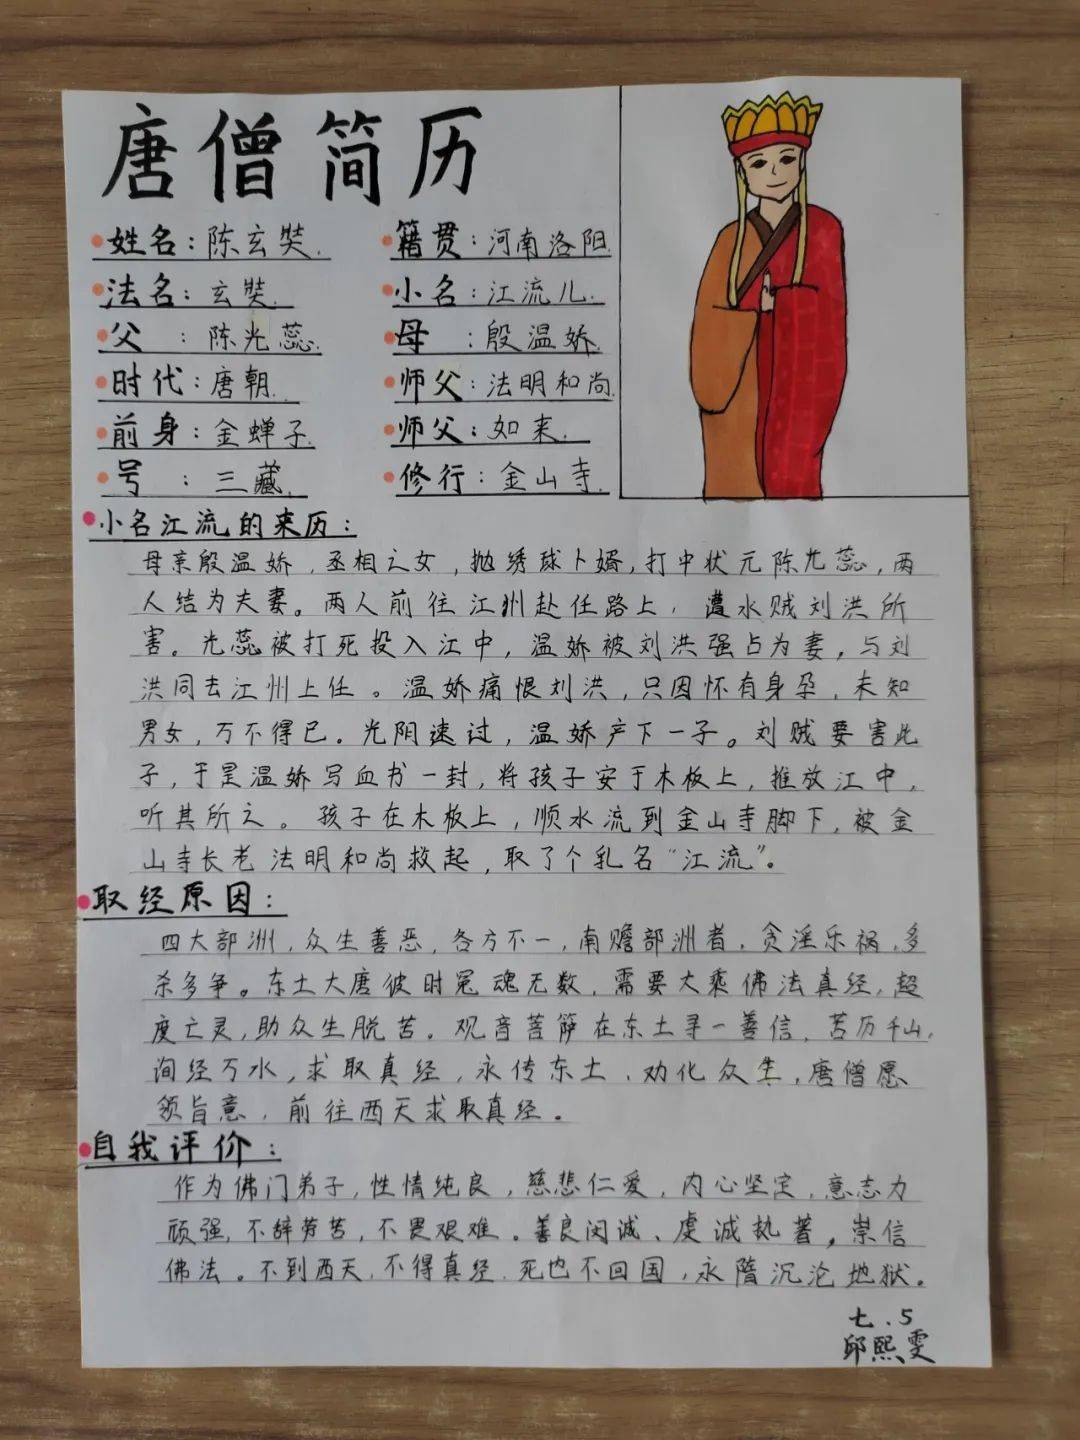 唐僧简历
姓名：陈玄奘. 籍贯：河南洛阳.
法名：玄奘. 小名：江流儿.
父：陈光蕊. 母：殷温娇.
时代：唐朝. 师父：法明和尚.
前身：金蝉子. 师父：如来.
号：三藏. 修行：金山寺.
小名江流的来历：
母亲殷温娇，丞相之女，抛绣球卜婿，打中状元陈光蕊，两
人结为夫妻。两人前往江州赴任路上，遭水贼刘洪所
害。光蕊被打死投入江中，温娇被刘洪强占为妻，与刘
洪同去江州上任。温娇痛恨刘洪，只因怀有身孕，未知
男女，万不得已。光阴速过，温娇产下一子。刘贼要害此
子，于是温娇写血书一封，将孩子安于木板上，推放江中，
听其所之。孩子在木板上，顺水流到金山寺脚下，被金
山寺长老法明和尚救起，取了个乳名“江流”。
取经原因：
四大部洲，众生善恶，各方不一，南赡部洲者，贪淫乐祸，多
杀多争。东土大唐彼时冤魂无数，需要大乘佛法真经，超
度亡灵，助众生脱苦。观音菩萨在东土寻一善信，苦历千山，
询经万水，求取真经，永传东土、劝化众生，唐僧愿
领旨意，前往西天求取真经。
自我评价：
作为佛门弟子，性情纯良，慈悲仁爱，内心坚定，意志力
顽强，不辞劳苦，不畏艰难。善良闵诚、虔诚执著，崇信
佛法。不到西天，不得真经，死也不回国，永隋沉沦地狱。
七.5
邱熙雯